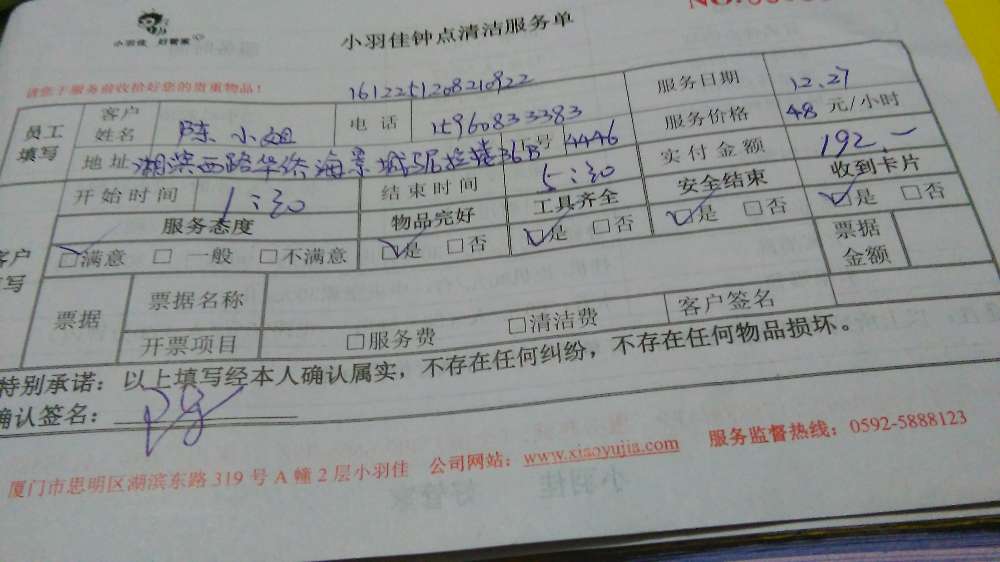 小羽佳 好管家
小羽佳钟点清洁服务单
NO.
请您于服务前收拾好您的贵重物品!
1612251208210922
服务日期 12.27
员工填写 客户姓名 陈小姐 电话 15960833383 服务价格 48元/小时
地址 湖滨西路华侨海景城 36B 号 4446 实付金额 192.-
开始时间 1:30 结束时间 5:30 安全结束 收到卡片
服务态度 物品完好 工具齐全 ☑是 □否 ☑是 □否
☑满意 □一般 □不满意 ☑是 □否 ☑是 □否 票据金额
客户填写
票据 票据名称
开票项目 □服务费 □清洁费 客户签名
特别承诺:以上填写经本人确认属实,不存在任何纠纷,不存在任何物品损坏。
确认签名:
厦门市思明区湖滨东路319号A幢2层小羽佳 公司网站:www.xiaoyujia.com 服务监督热线:0592-5888123